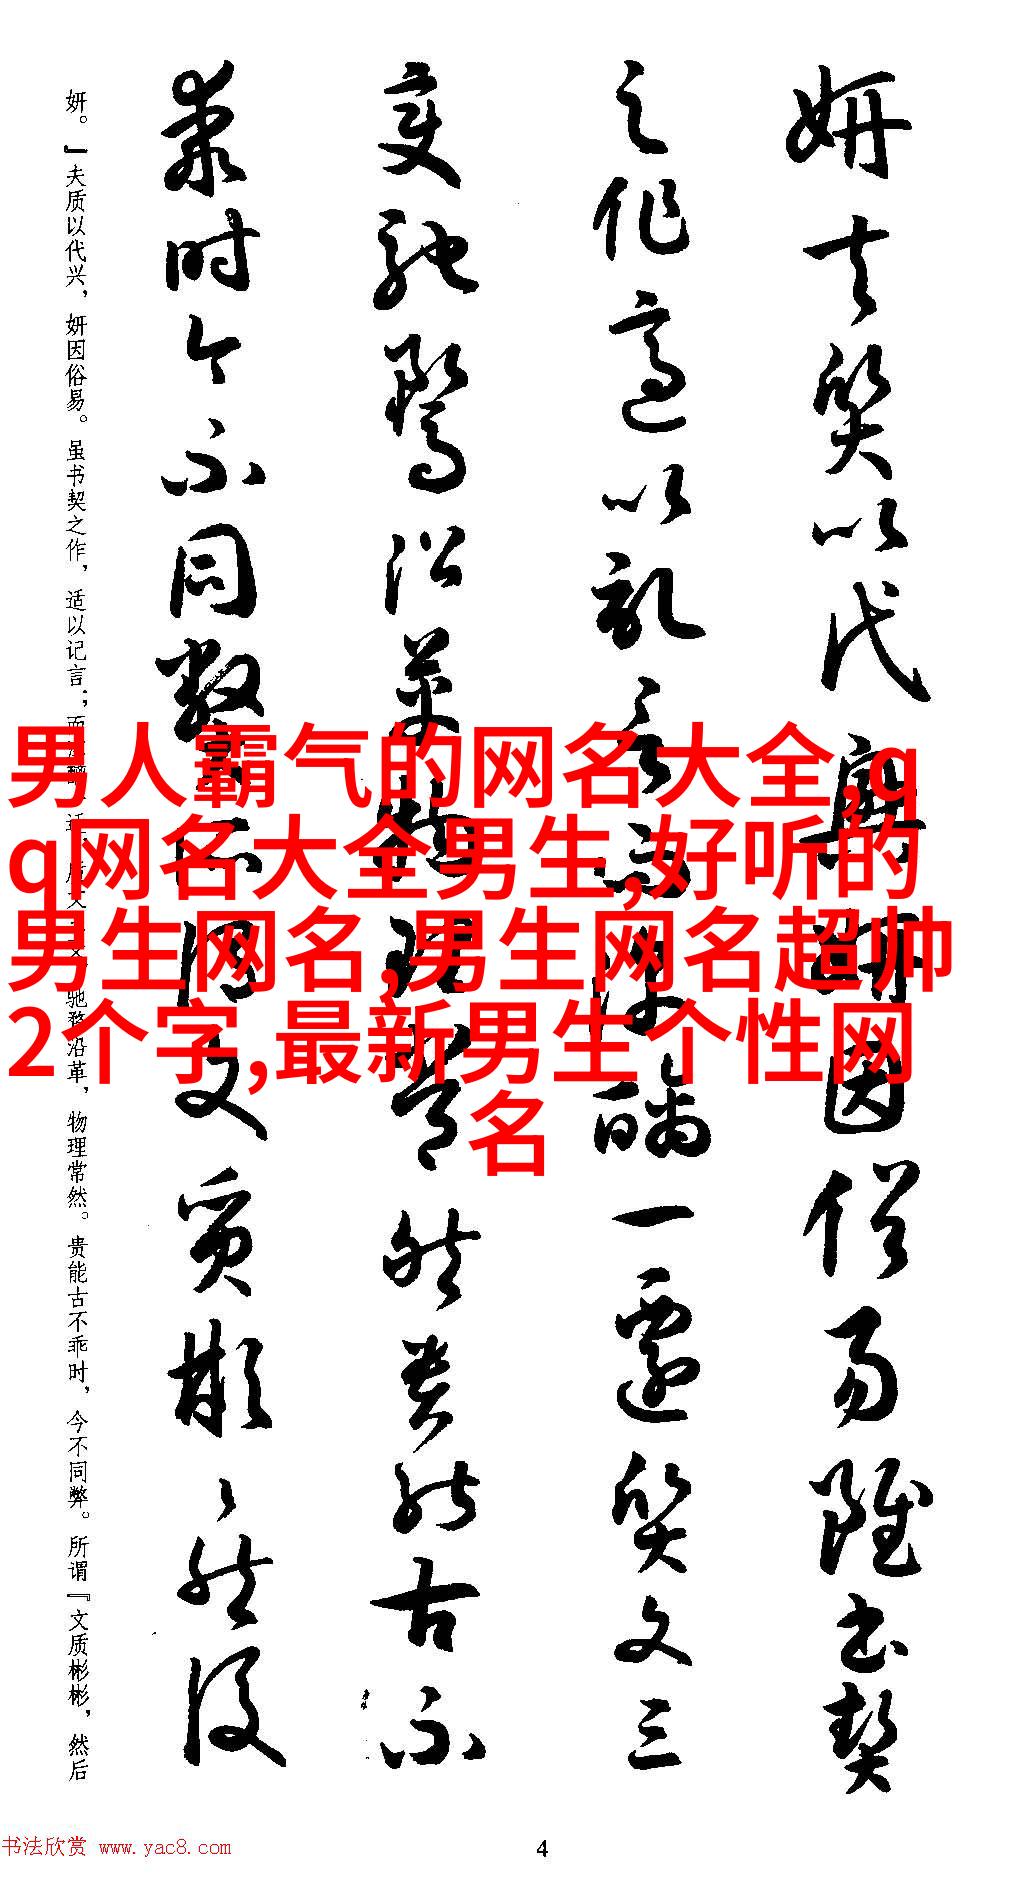 妍夫質以代興妍因俗易雖書契
之作適以記言而淳醨一遷質文三
變馳騖沿革物理常然貴能古不
乖時今不同弊所謂文質彬〻然後
妍。』夫质以代兴，妍因俗易。虽书契之作，适以记言；而淳醨一迁，质文三变，驰骛沿革，物理常然。贵能古不乖时，今不同弊。所谓『文质彬彬，然后
男人霸气的网名大全,q
q网名大全男生,好听的
男生网名,男生网名超帅
2个字,最新男生个性网
名
书法欣赏 www.yac8.com
4